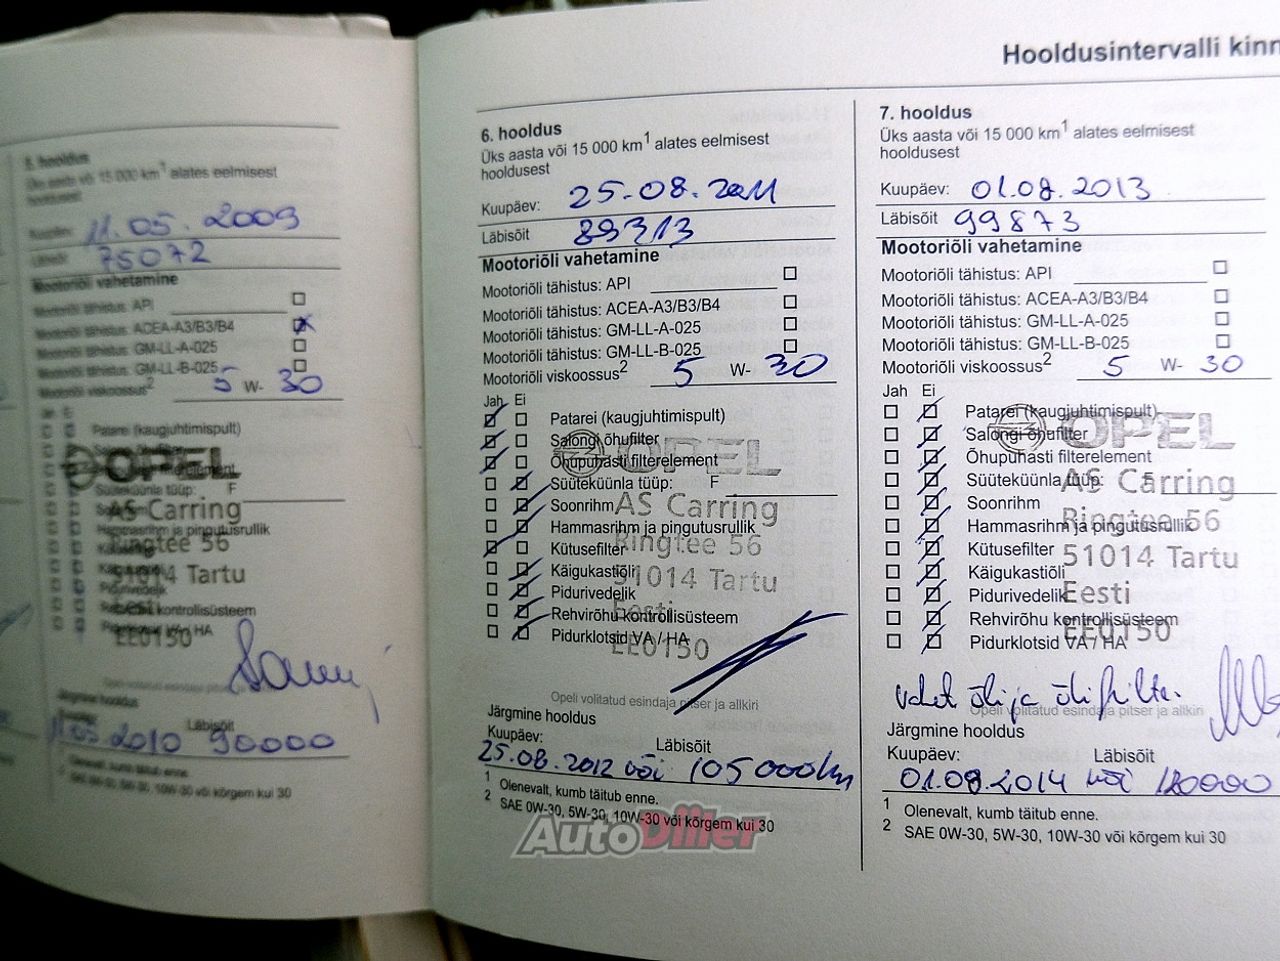 Hooldusintervalli kinn
5. hooldus
Üks aasta või 15 000 km1 alates eelmisest
hooldusest
Kuupäev: 11.05.2009
Läbisõit 75072
Mootoriõli vahetamine
Mootoriõli tähistus: API
Mootoriõli tähistus: ACEA-A3/B3/B4
Mootoriõli tähistus: GM-LL-A-025
Mootoriõli tähistus: GM-LL-B-025
Mootoriõli viskoossus2 5 W- 30
Jah Ei
Patarei (kaugjuhtimispult)
Salongi õhufilter
Õhupuhasti filterelement
Süüteküünla tüüp: F
Soonrihm
Hammasrihm ja pingutusrullik
Kütusefilter
Käigukastiõli
Pidurivedelik
Rehvirõhu kontrollisüsteem
Pidurklotsid VA / HA
OPEL
AS Carring
Ringtee 56
51014 Tartu
Eesti
EE0150
Opeli volitatud esindaja pitser ja
Järgmine hooldus
Kuupäev: Läbisõit
11.05.2010 90000
1 Olenevalt, kumb täitub enne.
2 SAE 0W-30, 5W-30, 10W-30 või kõrgem kui 30
6. hooldus
Üks aasta või 15 000 km1 alates eelmisest
hooldusest
Kuupäev: 25.08.2011
Läbisõit 89313
Mootoriõli vahetamine
Mootoriõli tähistus: API
Mootoriõli tähistus: ACEA-A3/B3/B4
Mootoriõli tähistus: GM-LL-A-025
Mootoriõli tähistus: GM-LL-B-025
Mootoriõli viskoossus2 5 W- 30
Jah Ei
Patarei (kaugjuhtimispult)
Salongi õhufilter
Õhupuhasti filterelement
Süüteküünla tüüp: F
Soonrihm
Hammasrihm ja pingutusrullik
Kütusefilter
Käigukastiõli
Pidurivedelik
Rehvirõhu kontrollisüsteem
Pidurklotsid VA / HA
OPEL
AS Carring
Ringtee 56
51014 Tartu
Eesti
EE0150
Opeli volitatud esindaja pitser ja allkiri
Järgmine hooldus
Kuupäev: Läbisõit
25.08.2012 või 105000km
1 Olenevalt, kumb täitub enne.
2 SAE 0W-30, 5W-30, 10W-30 või kõrgem kui 30
7. hooldus
Üks aasta või 15 000 km1 alates eelmisest
hooldusest
Kuupäev: 01.08.2013
Läbisõit 99873
Mootoriõli vahetamine
Mootoriõli tähistus: API
Mootoriõli tähistus: ACEA-A3/B3/B4
Mootoriõli tähistus: GM-LL-A-025
Mootoriõli tähistus: GM-LL-B-025
Mootoriõli viskoossus2 5 W- 30
Jah Ei
Patarei (kaugjuhtimispult)
Salongi õhufilter
Õhupuhasti filterelement
Süüteküünla tüüp: F
Soonrihm
Hammasrihm ja pingutusrullik
Kütusefilter
Käigukastiõli
Pidurivedelik
Rehvirõhu kontrollisüsteem
Pidurklotsid VA / HA
OPEL
AS Carring
Ringtee 56
51014 Tartu
Eesti
EE0150
vahet õli ja õlifilter.
Opeli volitatud esindaja pitser ja allkiri
Järgmine hooldus
Kuupäev: Läbisõit
01.08.2014 või 120000
1 Olenevalt, kumb täitub enne.
2 SAE 0W-30, 5W-30, 10W-30 või kõrgem kui 30
AutoDiller